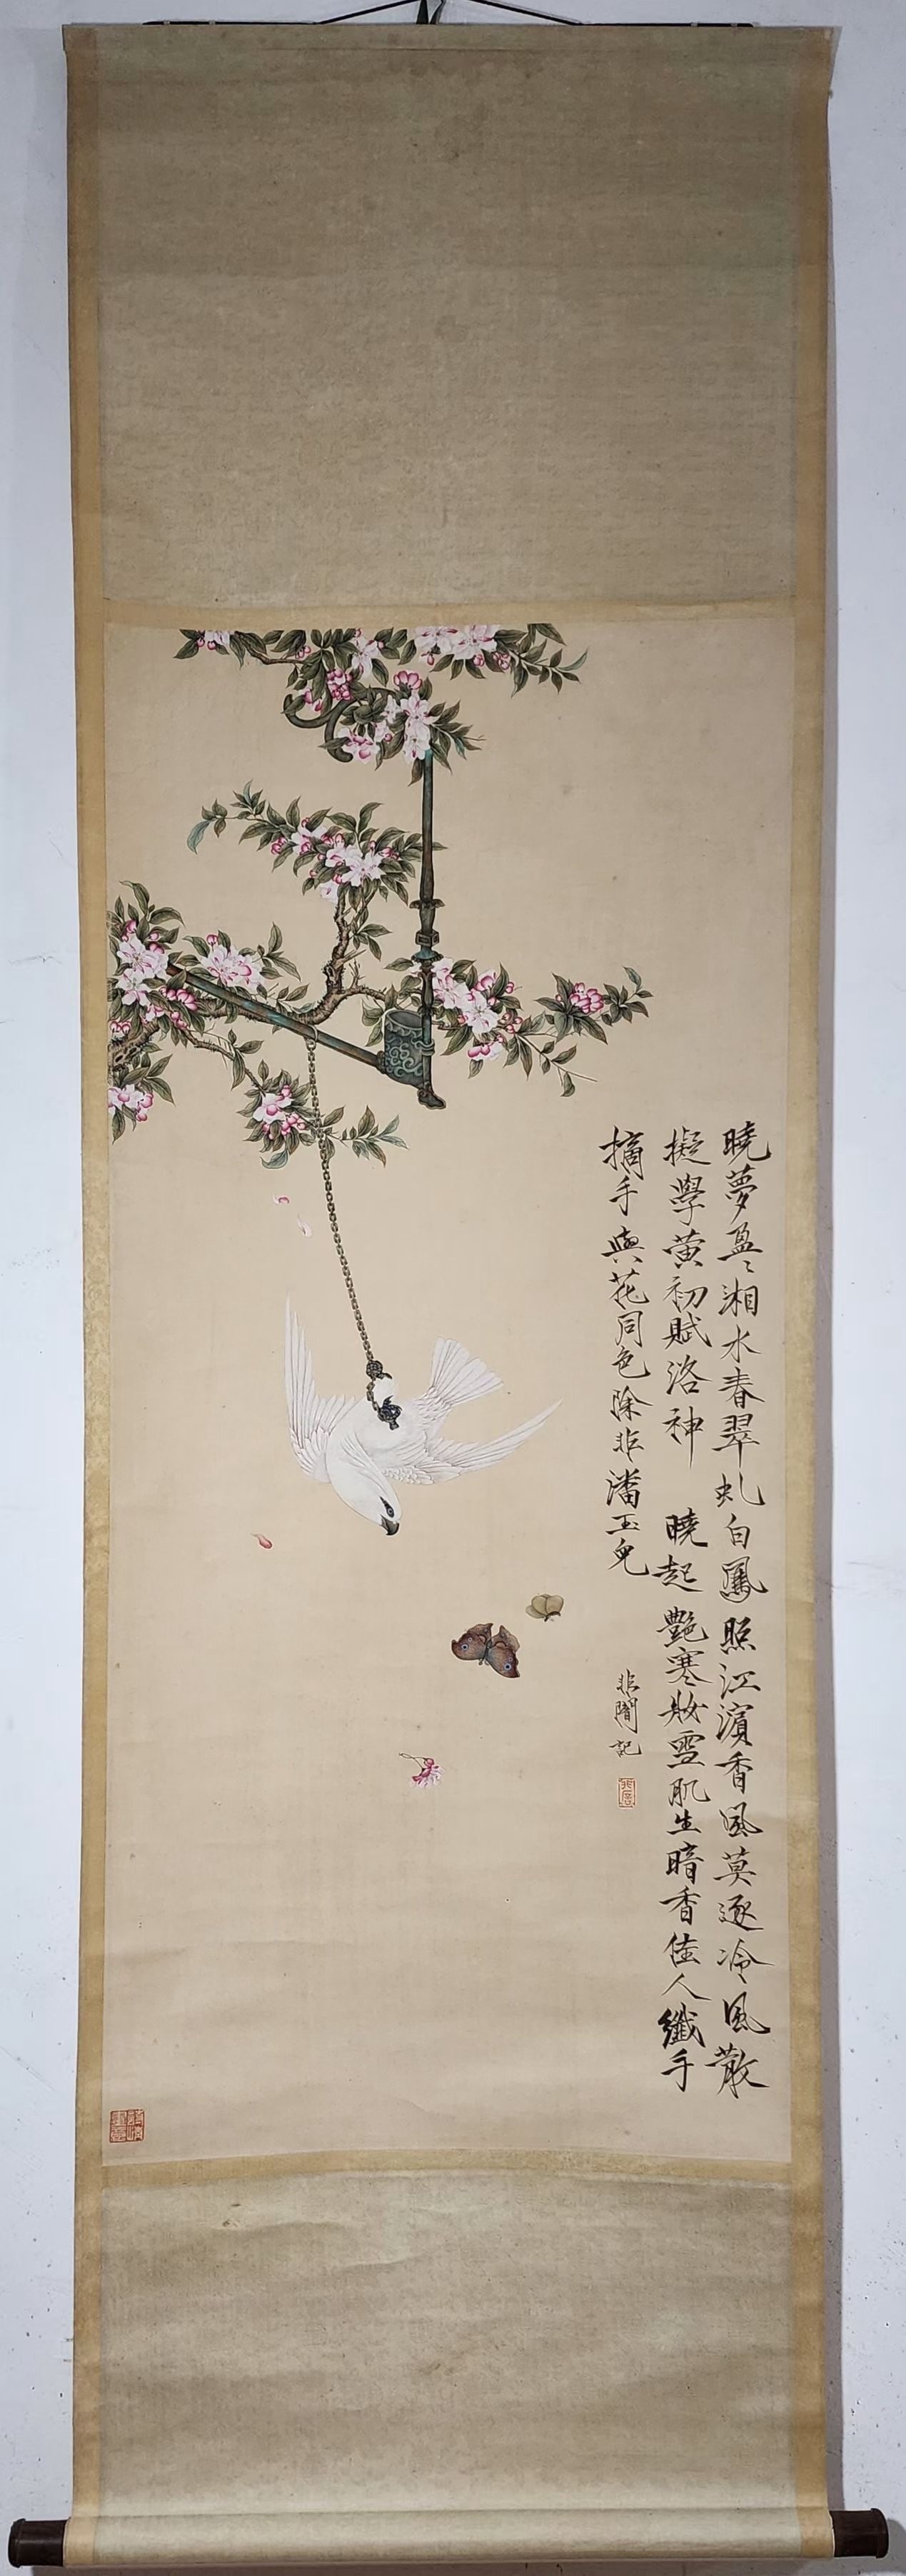 曉夢盈〻湘水春翠虬白鳳照江濱香風莫逐冷風散
擬學黄初賦洛神 曉起艷寒妝雪肌生暗香佳人纖手
摘手與花同色除非潘玉兒
非闇記